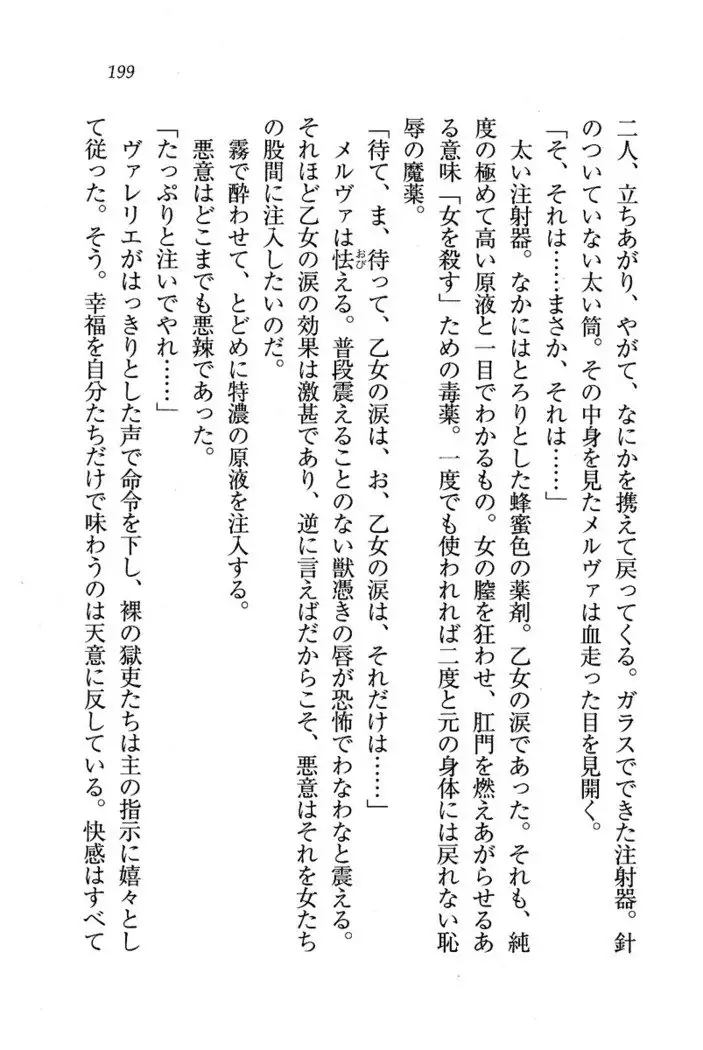 199
二人、立ちあがり、やがて、なにかを携えて戻ってくる。ガラスでできた注射器。針
のついていない太い筒。その中身を見たメルヴァは血走った目を見開く。
「そ、それは……まさか、それは……」
太い注射器。なかにはとろりとした蜂蜜色の薬剤。乙女の涙であった。それも、純
度の極めて高い原液と一目でわかるもの。女の膣を狂わせ、肛門を燃えあがらせるあ
る意味「女を殺す」ための毒薬。一度でも使われれば二度と元の身体には戻れない恥
辱の魔薬。
「待て、ま、待って、乙女の涙は、お、乙女の涙は、それだけは……」
メルヴァは怯える。普段震えることのない獣憑きの唇が恐怖でわなわなと震える。
それほど乙女の涙の効果は激甚であり、逆に言えばだからこそ、悪意はそれを女たち
の股間に注入したいのだ。
霧で酔わせて、とどめに特濃の原液を注入する。
悪意はどこまでも悪辣であった。
「たっぷりと注いでやれ……」
ヴァレリエがはっきりとした声で命令を下し、裸の獄吏たちは主の指示に嬉々とし
て従った。そう。幸福を自分たちだけで味わうのは天意に反している。快感はすべて